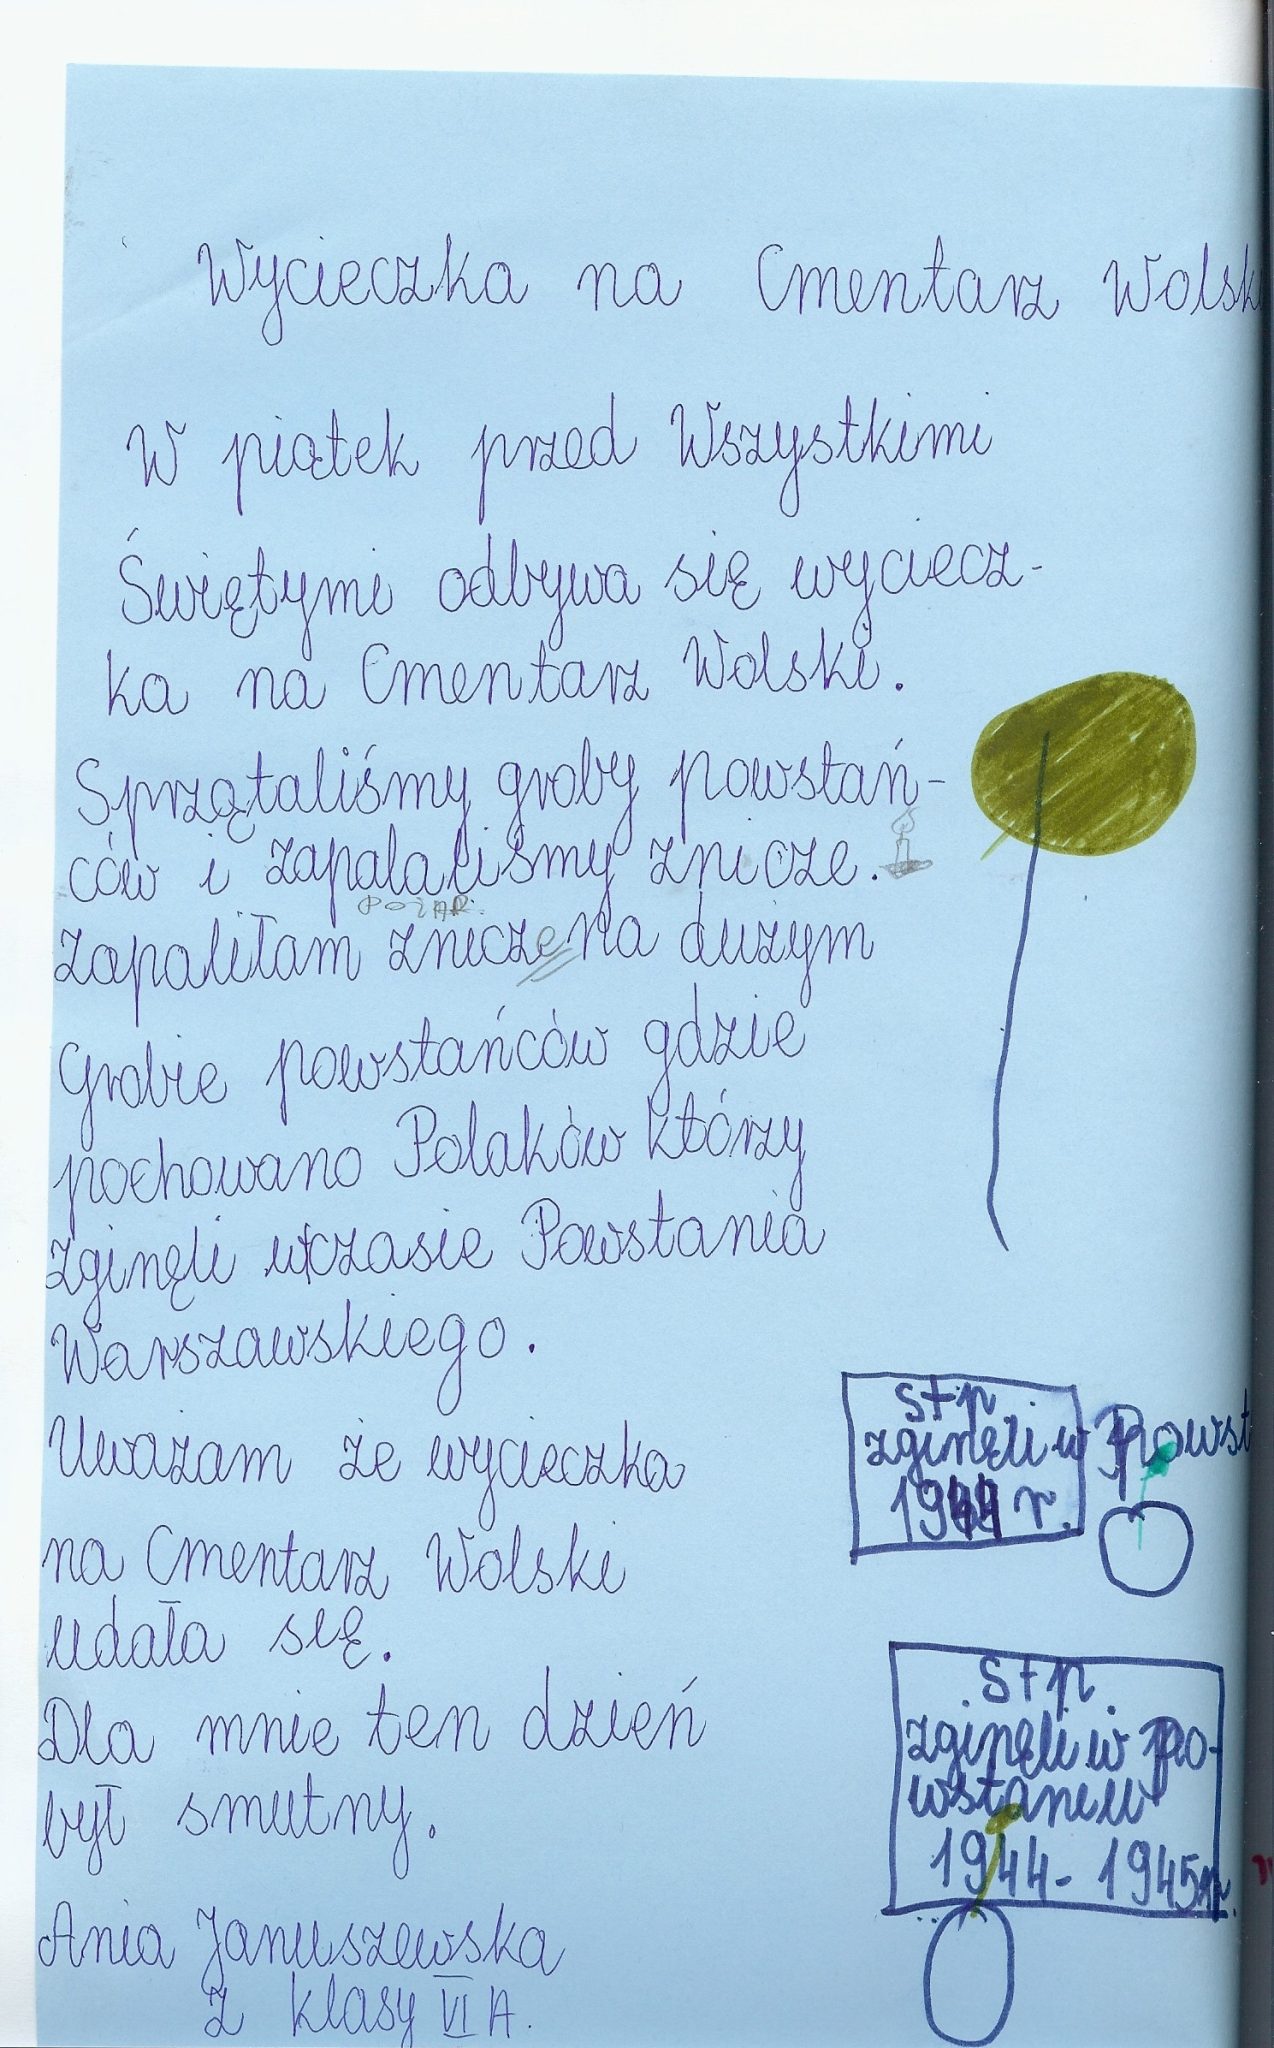 Wycieczka na Cmentarz Wolsk
W piątek przed Wszystkimi
Świętymi odbywa się wyciecz-
ka na Cmentarz Wolski.
Sprzątaliśmy groby powstań-
ców i zapalaliśmy znicze.
POŻAR.
Zapaliłam znicze na dużym
Grobie powstańców gdzie
pochowano Polaków którzy
zginęli w czasie Powstania
Warszawskiego.
Uważam że wycieczka
na Cmentarz Wolski
udała się.
Dla mnie ten dzień
był smutny.
Ania Januszewska
z klasy VI A.
ś+p
zginęli w Powst
1944 r.
ś+p.
zginęli w po-
wstaniu
1944-1945r.